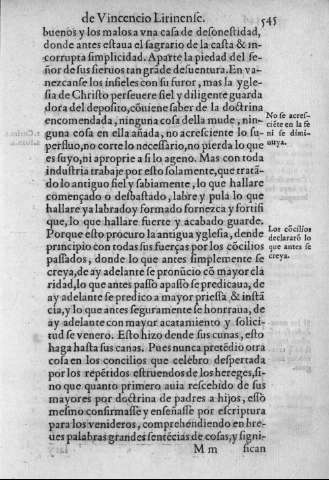 de Vincencio Lirinense.
545
buenos y los malos a vna casa de desonestidad,
donde antes estaua el sagrario de la casta & in-
corrupta simplicidad. Aparte la piedad del se-
ñor de sus sieruos tan gråde desuentura. En va-
nezcanse los infieles con su furor, mas la ygle-
sia de Christo perseuere fiel y diligente guarda
dora del deposito, cõuiene saber de la doctrina
encomendada, ninguna cosa della mude, nin-
guna cosa en ella añada, no acresciente lo su-
perfluo, no corte lo necessario, no pierda lo que
es suyo, ni aproprie a si lo ageno. Mas con toda
industria trabaje por esto solamente, que tratã-
do lo antiguo fiel y sabiamente, lo que hallare
començado o desbastado, labre y pula lo que
hallare ya labrado y formado fornezca y fortifi
que, lo que hallare fuerte y acabado guarde.
Porque esto procuro la antigua yglesia, dende
principio con todas sus fuerças por los cõcilios
passados, donde lo que antes simplemente se
creya, de ay adelante se pronũcio cõ mayor cla
ridad, lo que antes passo a passo se predicaua, de
ay adelante se predico a mayor priessa & instã
cia, y lo que antes seguramente se honrraua, de
ay adelante con mayor acatamiento y solici-
tud se venero. Esto hizo dende sus cunas, esto
haga hasta sus canas. Pues nunca pretẽdio otra
cosa en los concilios que celebro despertada
por los repẽtidos estruendos de los hereges, si-
no que quanto primero auia rescebido de sus
mayores por doctrina de padres a hijos, esso
mesmo confirmasse y enseñasse por escriptura
para los venideros, comprehendiendo en bre-
ues palabras grandes sentẽcias de cosas, y signi-
M m
fican
No se acres-
ciẽte en la fe
ni se dimi-
nuya.
Los cõcilios
declararõ lo
que antes se
creya.